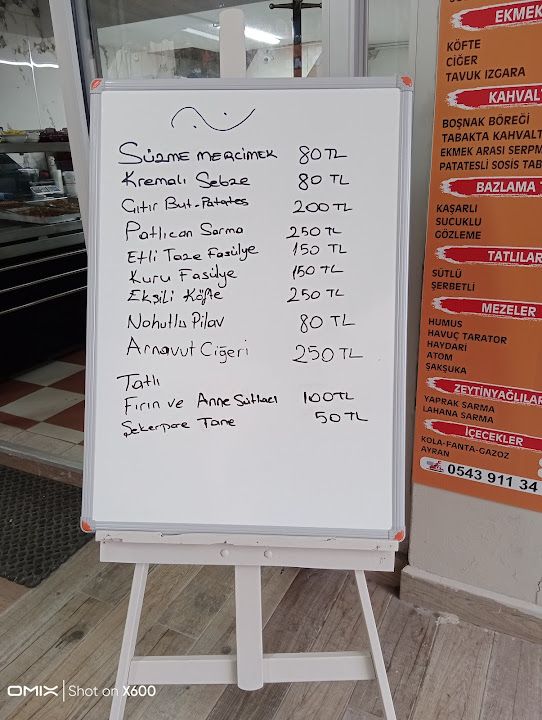 Süzme mercimek 80 TL
Kremalı Sebze 80 TL
Çıtır But-Patates 200 TL
Patlıcan Sarma 250 TL
Etli Taze Fasülye 150 TL
Kuru Fasülye 150 TL
Ekşili Köfte 250 TL
Nohutlu Pilav 80 TL
Arnavut Ciğeri 250 TL
Tatlı
Fırın ve Anne Sütlacı 100 TL
Şekerpare Tane 50 TL
EKMEK
KÖFTE
CİĞER
TAVUK IZGARA
KAHVALT
BOŞNAK BÖREĞİ
TABAKTA KAHVALT
EKMEK ARASI SERPM
PATATESLİ SOSİS TAB
BAZLAMA T
KAŞARLI
SUCUKLU
GÖZLEME
TATLILAR
SÜTLÜ
ŞERBETLİ
MEZELER
HUMUS
HAVUÇ TARATOR
HAYDARİ
ATOM
ŞAKŞUKA
ZEYTİNYAĞLILAR
YAPRAK SARMA
LAHANA SARMA
İÇECEKLER
KOLA-FANTA-GAZOZ
AYRAN
0543 911 34
OMIX | Shot on X600